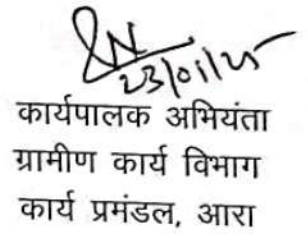 23/01/25
कार्यपालक अभियंता
ग्रामीण कार्य विभाग
कार्य प्रमंडल, आरा